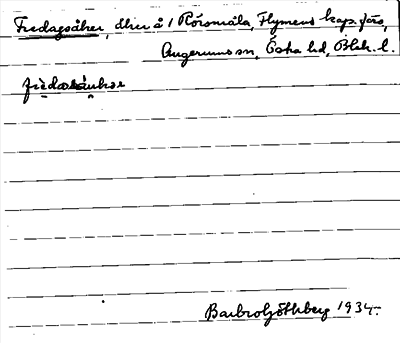 Fredagsåker, åker å 1 Rörsmåla, Flymens kap.förs,
Augerums sn, Östra hd, Blek. l.
Barbro Göthberg 1934.